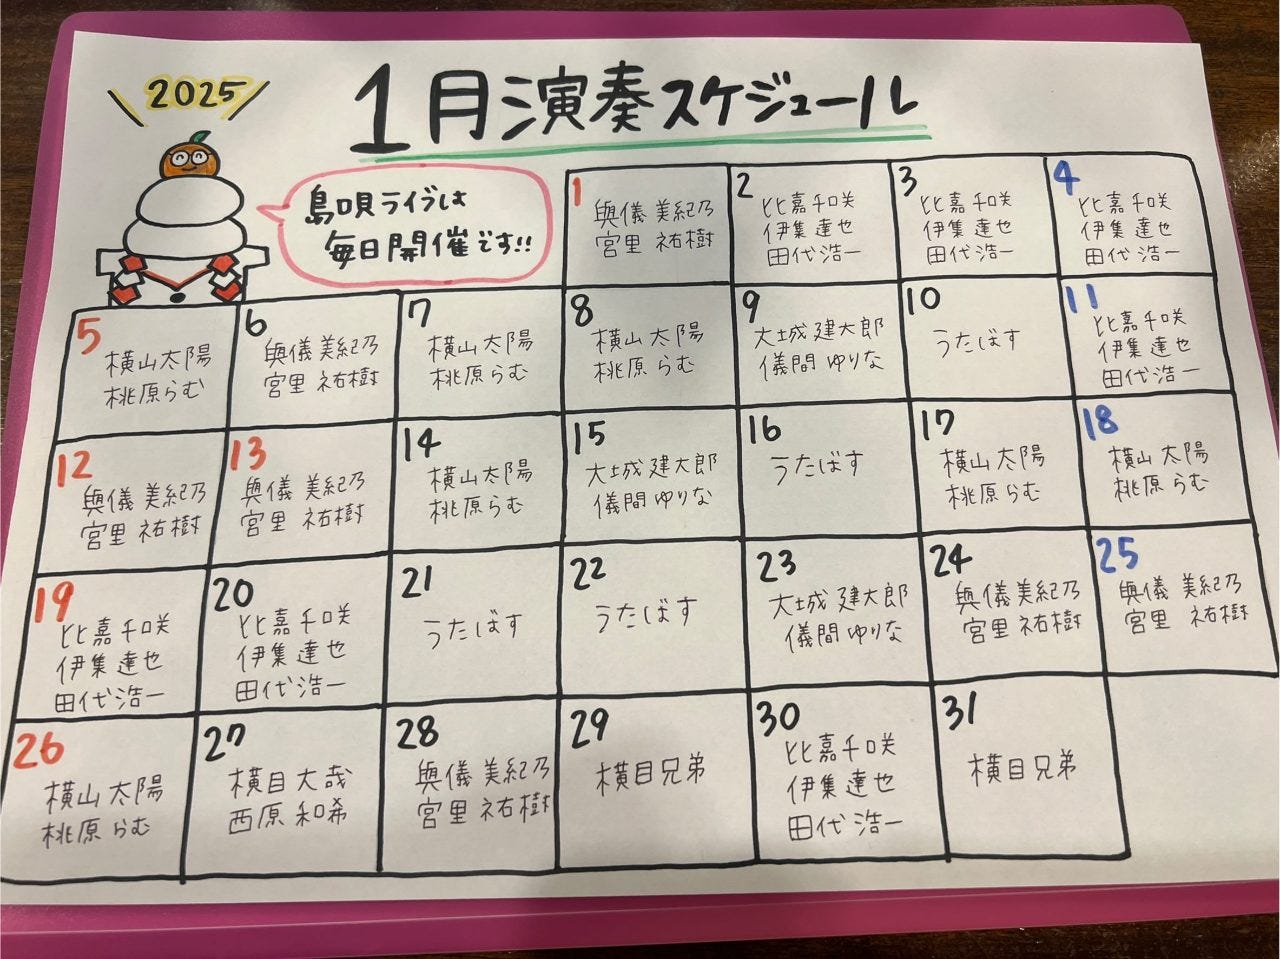 2025
1月演奏スケジュール
島唄ライブは
毎日開催です!!
1
與儀 美紀乃
宮里 祐樹
2
比嘉 千咲
伊集 達也
田代 浩一
3
比嘉 千咲
伊集 達也
田代 浩一
4
比嘉 千咲
伊集 達也
田代 浩一
5
横山 太陽
桃原 らむ
6
與儀 美紀乃
宮里 祐樹
7
横山 太陽
桃原 らむ
8
横山 太陽
桃原 らむ
9
大城 建太郎
儀間 ゆりな
10
うたばす
11
比嘉 千咲
伊集 達也
田代 浩一
12
與儀 美紀乃
宮里 祐樹
13
與儀 美紀乃
宮里 祐樹
14
横山 太陽
桃原 らむ
15
大城 建太郎
儀間 ゆりな
16
うたばす
17
横山 太陽
桃原 らむ
18
横山 太陽
桃原 らむ
19
比嘉 千咲
伊集 達也
田代 浩一
20
比嘉 千咲
伊集 達也
田代 浩一
21
うたばす
22
うたばす
23
大城 建太郎
儀間 ゆりな
24
與儀 美紀乃
宮里 祐樹
25
與儀 美紀乃
宮里 祐樹
26
横山 太陽
桃原 らむ
27
横目 大哉
西原 和希
28
與儀 美紀乃
宮里 祐樹
29
横目兄弟
30
比嘉 千咲
伊集 達也
田代 浩一
31
横目兄弟